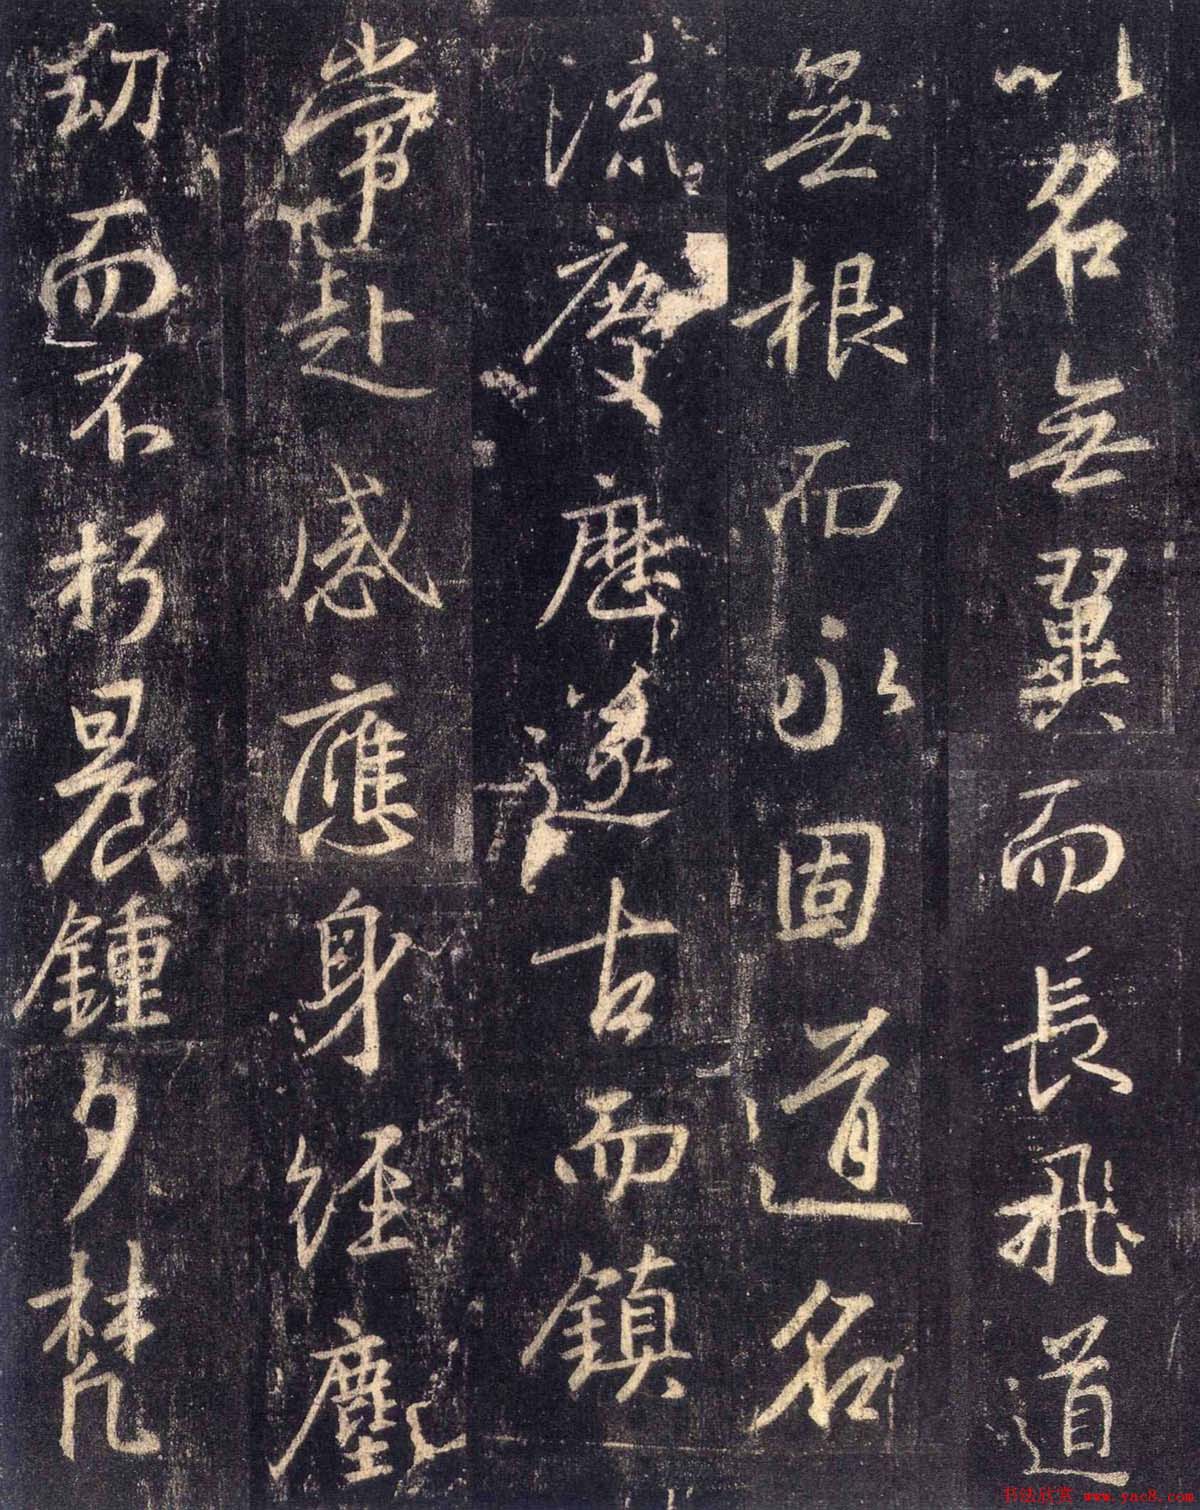 以名無翼而長飛道
無根而永固道名
流慶歷遂古而鎮
常赴感應身經塵
劫而不朽晨鍾夕梵
书法欣赏 www.yac8.com